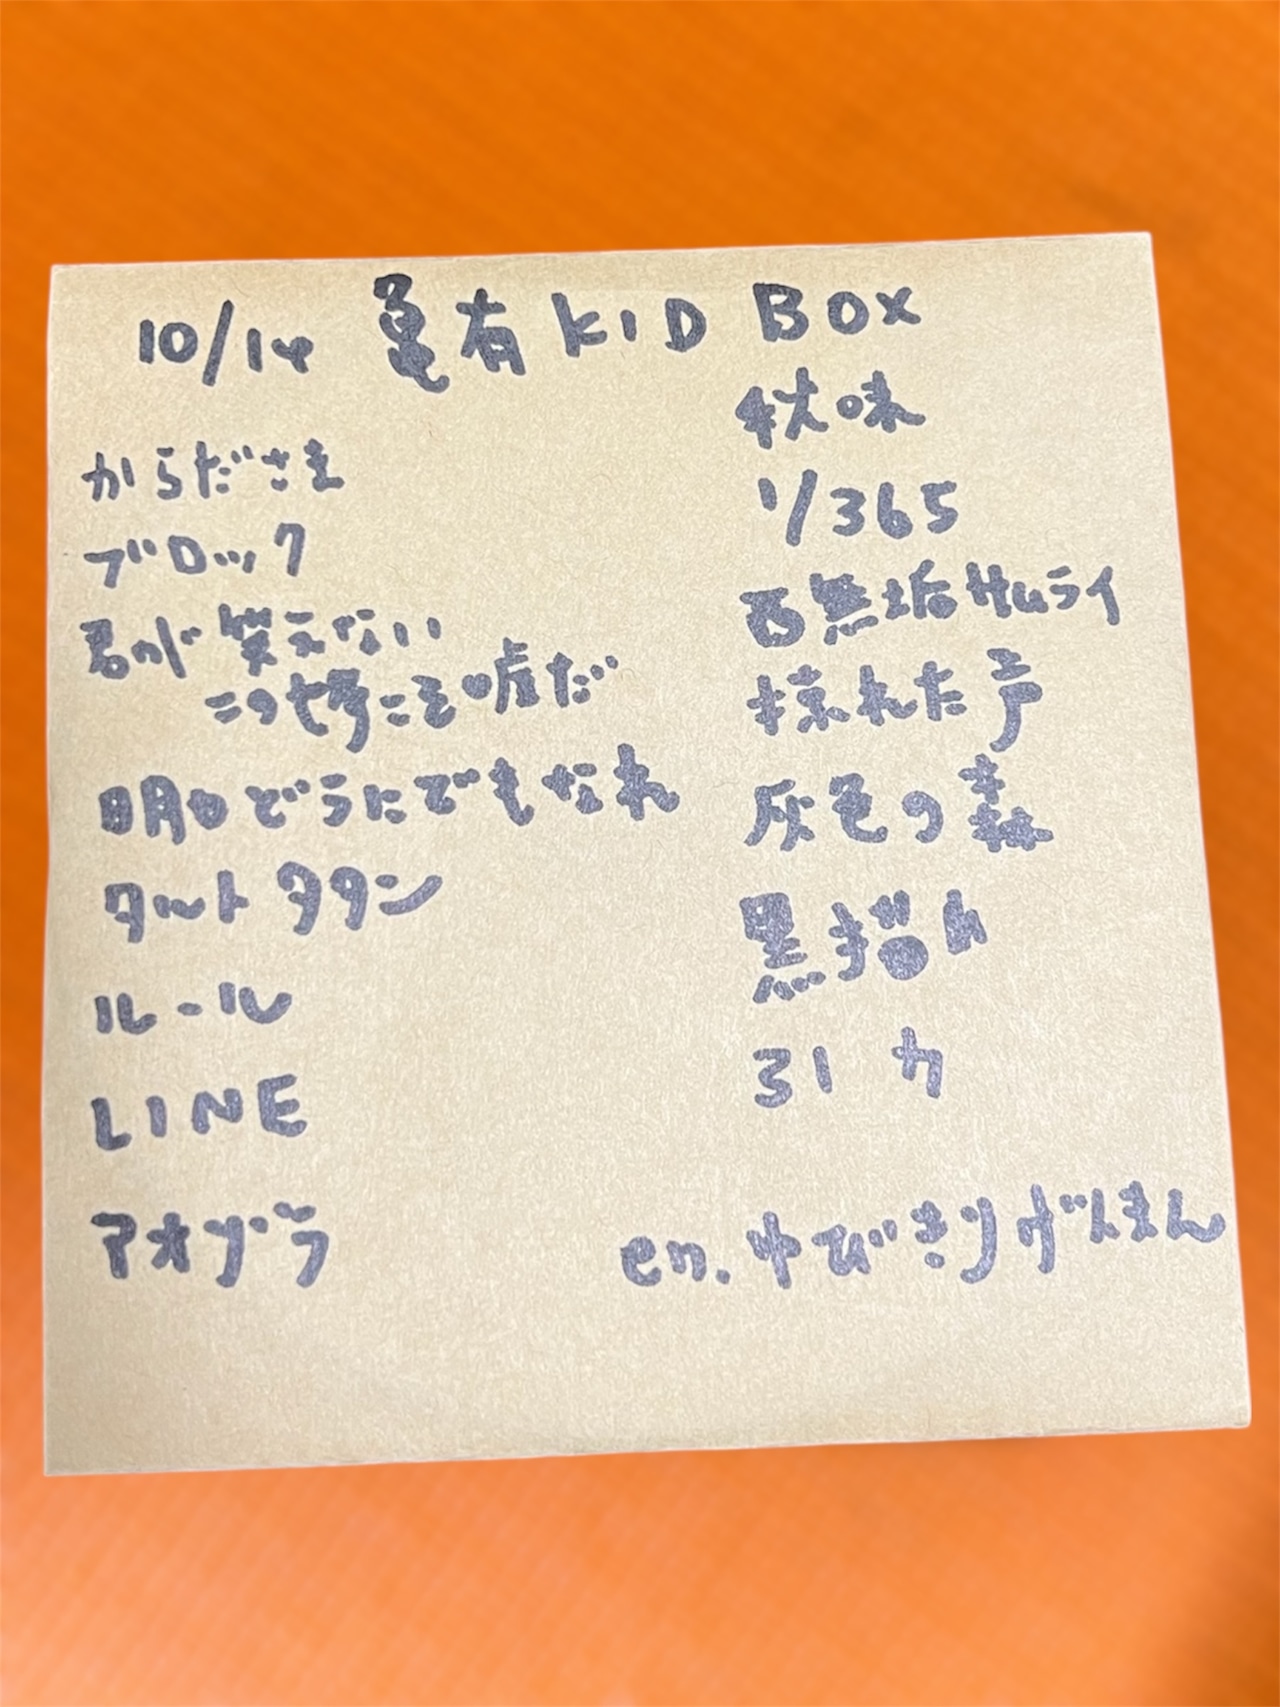 10/14 亀有 KID BOX
からださえ
ブロック
君が笑えない
この世界こそ嘘だ
明日どうにでもなれ
タルトタタン
ルール
LINE
アオゾラ
秋味
1/365
白無垢サムライ
掠れた声
灰色の森
黒猫A
31カ
en. ゆびきりげんまん